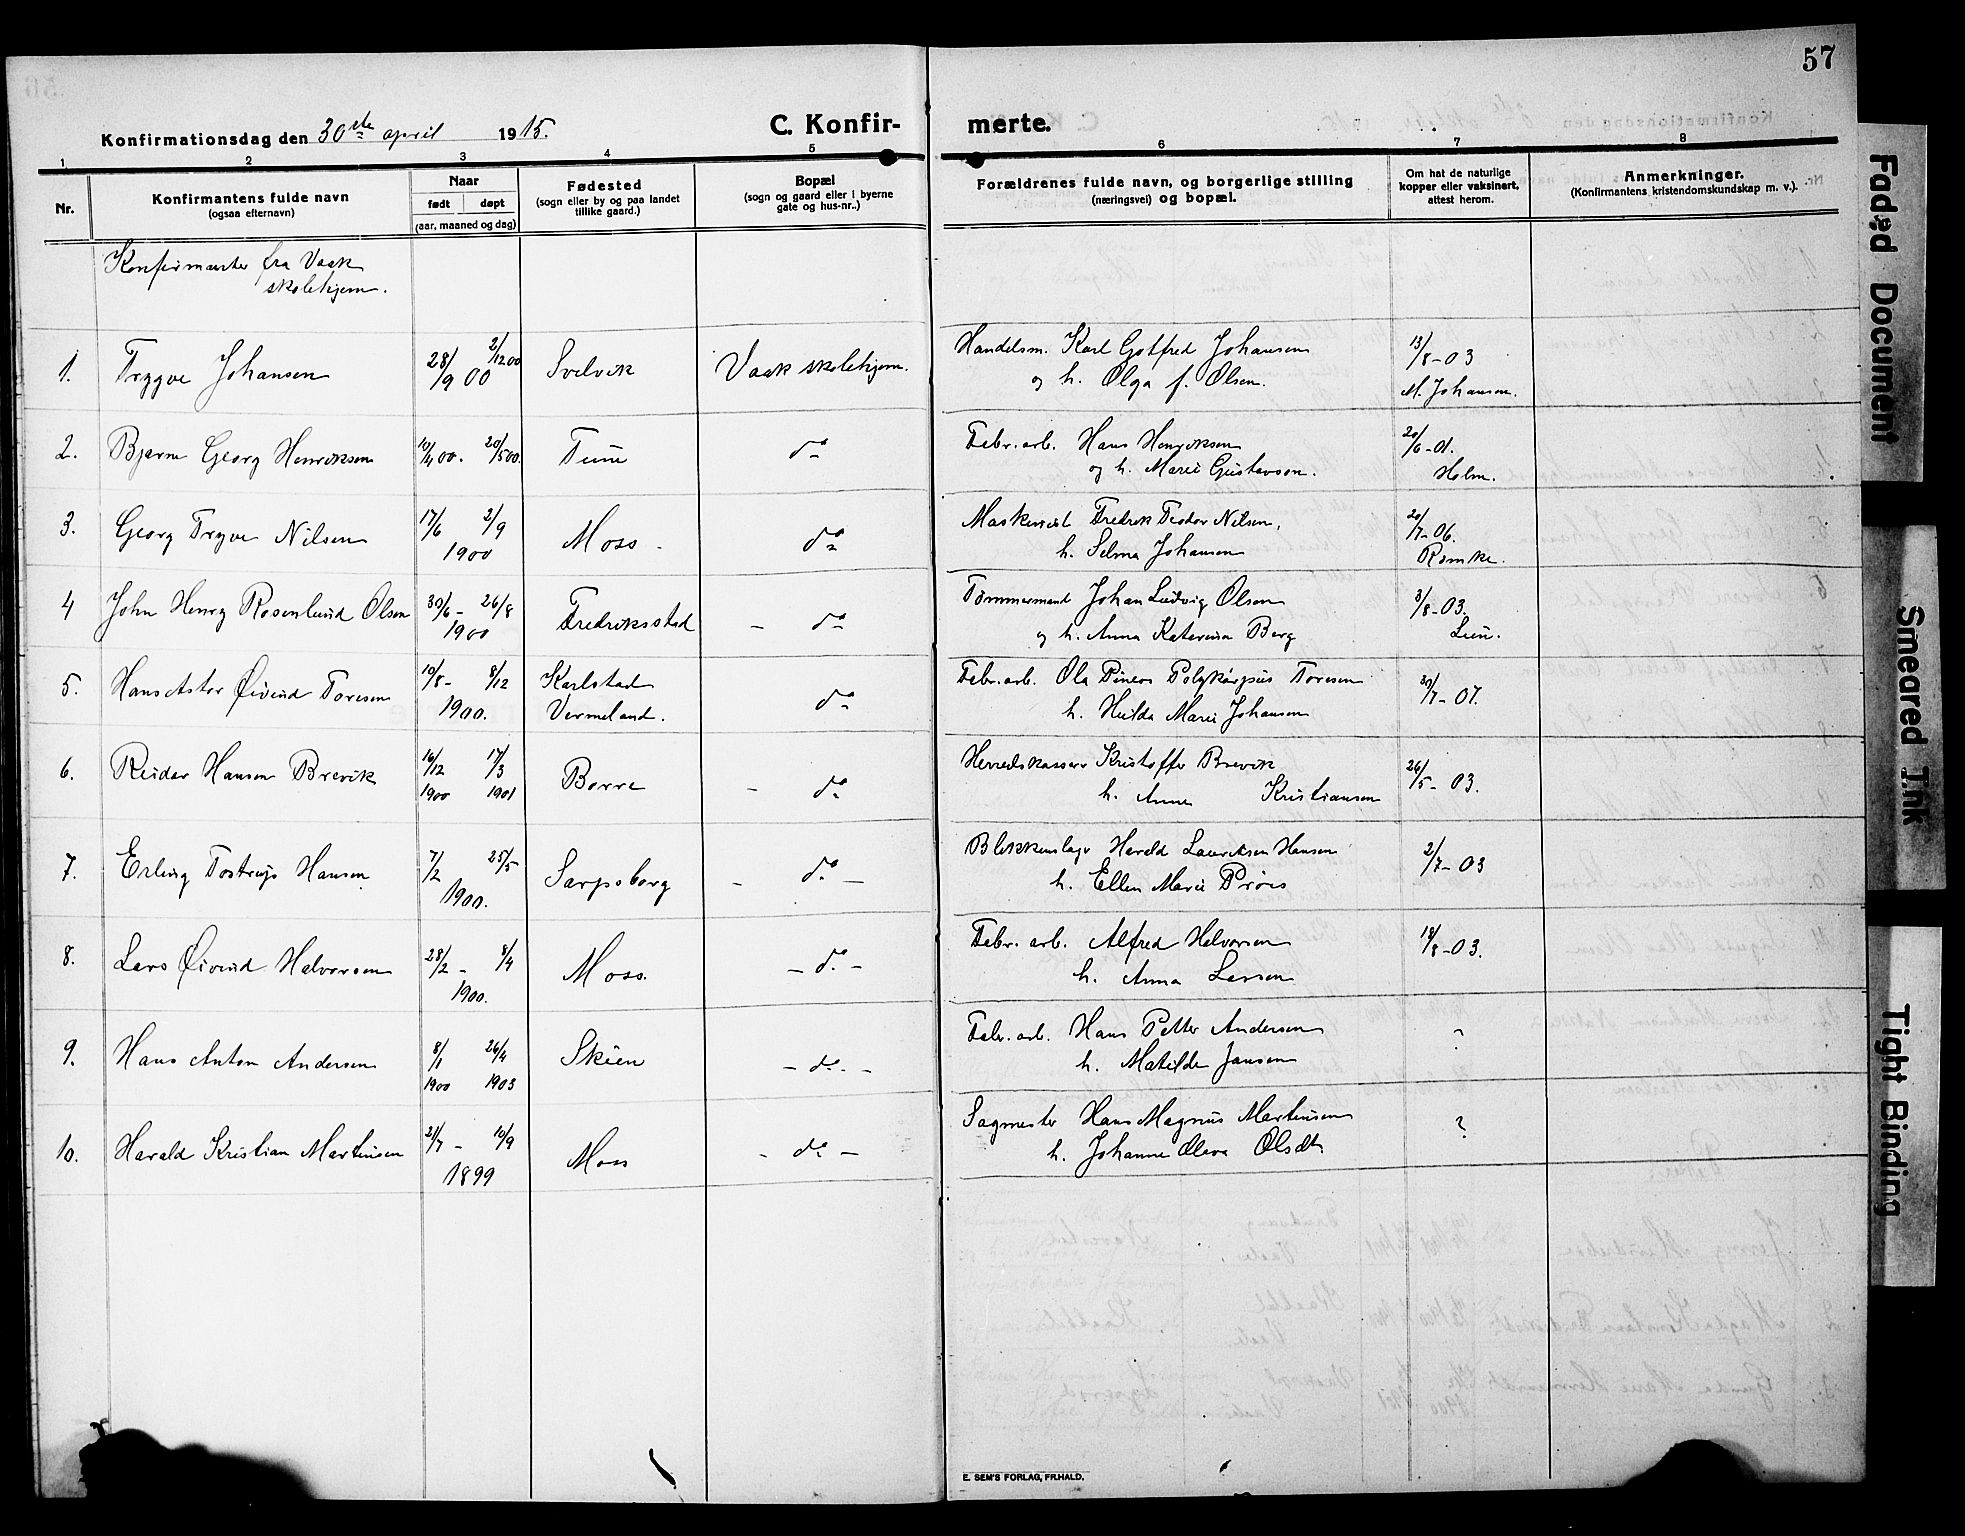 57
Konfirmationsdag den 30te april 1915. C. Konfir- merte.
1 2 3 4 5 6 7 8
Nr. Konfirmantens fulde navn (ogsaa efternavn) Naar født døpt (aar, maaned og dag) Fødested (sogn eller by og paa landet tillike gaard.) Bopæl (sogn og gaard eller i byerne gate og hus-nr..) Forældrenes fulde navn, og borgerlige stilling (næringsvei) og bopæl. Om hat de naturlige kopper eller vaksinert, attest herom. Anmerkninger. (Konfirmantens kristendomskundskap m. v.).
Konfirmanter fra Vaak
skolehjem.
1. Trygve Johansen 28/9 00 2/12 00 Svelvik Vaak skolehjem. Handelsm. Karl Gotfred Johansen 13/8-03
og h. Olga f. Olsen. M. Johansen.
2. Bjarne Georg Henriksen 10/4 00. 20/5 00. Tune do Fabr. arb. Hans Henriksen 20/6-01.
og h. Marie Gustavson. Holm.
3. Georg Trygve Nilsen 17/6 2/9 Moss do Maskinist Fredrik Teodor Nilsen, 20/7-06.
1900 h. Selma Johansen Rømke.
4 John Henry Rosenlund Olsen 30/6- 26/8 Fredriksstad - do Tømmermand Johan Ludvig Olsen 3/8-03.
1900 og h. Anna Katerina Berg Lun.
5. Hans Astor Øivind Toresen 10/8- 8/12 Karlstad do Fabr. arb. Ola Pineos Polykarpus Toresen 30/7-07.
1900. Vermeland. h. Hulda Marie Johansen
6. Reidar Hansen Brevik 16/12 17/3 Borre - do Herredskasserer Kristoffer Brevik 26/5-03.
1900 1901 h. Anne Kristiansen
7. Erling Tostrup Hansen 7/2 25/5 Sarpsborg - do - Blikkenslager Harald Lauritsen Hansen 2/7-03
1900. h. Ellen Marie Prøis
8. Lars Øivind Halvorsen 28/2- 8/4 Moss. - do - Fabr. arb. Alfred Halvorsen 18/8-03.
1900. h. Anna Larsen
9. Hans Anton Andersen 8/1 26/4 Skien - do - Fabr. arb. Hans Petter Andersen ?
1900 1903 h. Matilde Jansen
10. Harald Kristian Martinsen 21/7- 10/9 Moss - do - Sagmester Hans Magnus Martinsen ?
1899 h. Johanne Oleva Olsdt
E. SEM'S FORLAG, FR.HALD.
Faded Document
Smeared Ink
Tight Binding